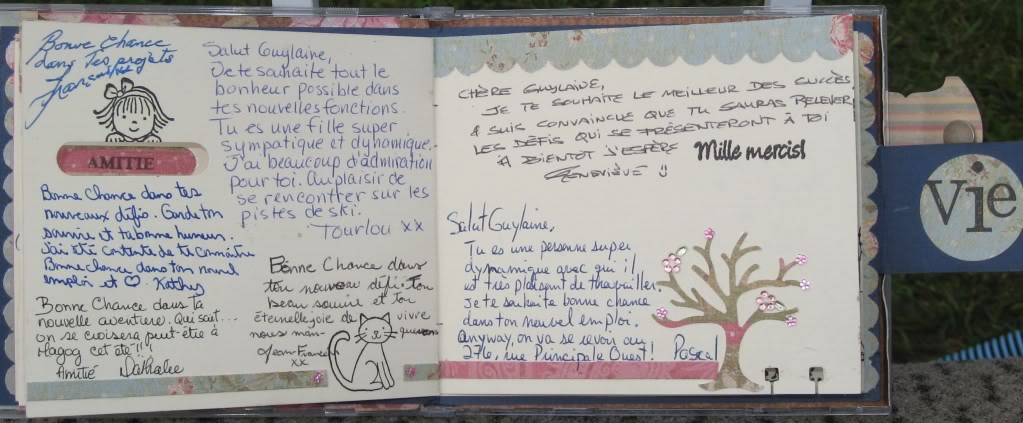 Bonne Chance
dans tes projets
AMITIE
Salut Guylaine,
Je te souhaite tout le
bonheur possible dans
tes nouvelles fonctions.
Tu es une fille super
sympatique et dynamique.
J'ai beaucoup d'admiration
pour toi. Au plaisir de
se rencontrer sur les
pistes de ski.
Tourlou xx
Bonne Chance dans tes
nouveaux défis. Garde ton
sourire et ta bonne humeur.
J'ai été contente de te connaître
Bonne chance dans ton nouvel
emploi et ♡. Kathy
Bonne Chance dans ta
nouvelle aventure. Qui sait...
on se croisera peut-être à
Magog cet été!!
Amitié Nathalie
Bonne Chance dans
ton nouveau défi. Ton
beau sourire et ton
éternelle joie de vivre
nous man- queront
Jean-Francois
xx
CHÈRE GUYLAINE,
JE TE SOUHAITE LE MEILLEUR DES SUCCÈS
& SUIS CONVAINCUE QUE TU SAURAS RELEVER
LES DÉFIS QUI SE PRÉSENTERONT À TOI
À BIENTÔT J'ESPÈRE
GENEVIÈVE
Mille mercis!
Salut Guylaine,
Tu es une personne super
dynamique avec qui il
est très plaisant de travailler
Je te souhaite bonne chance
dans ton nouvel emploi.
Anyway, on va se revoir au
276, rue Principale Ouest! Pascal
Vie